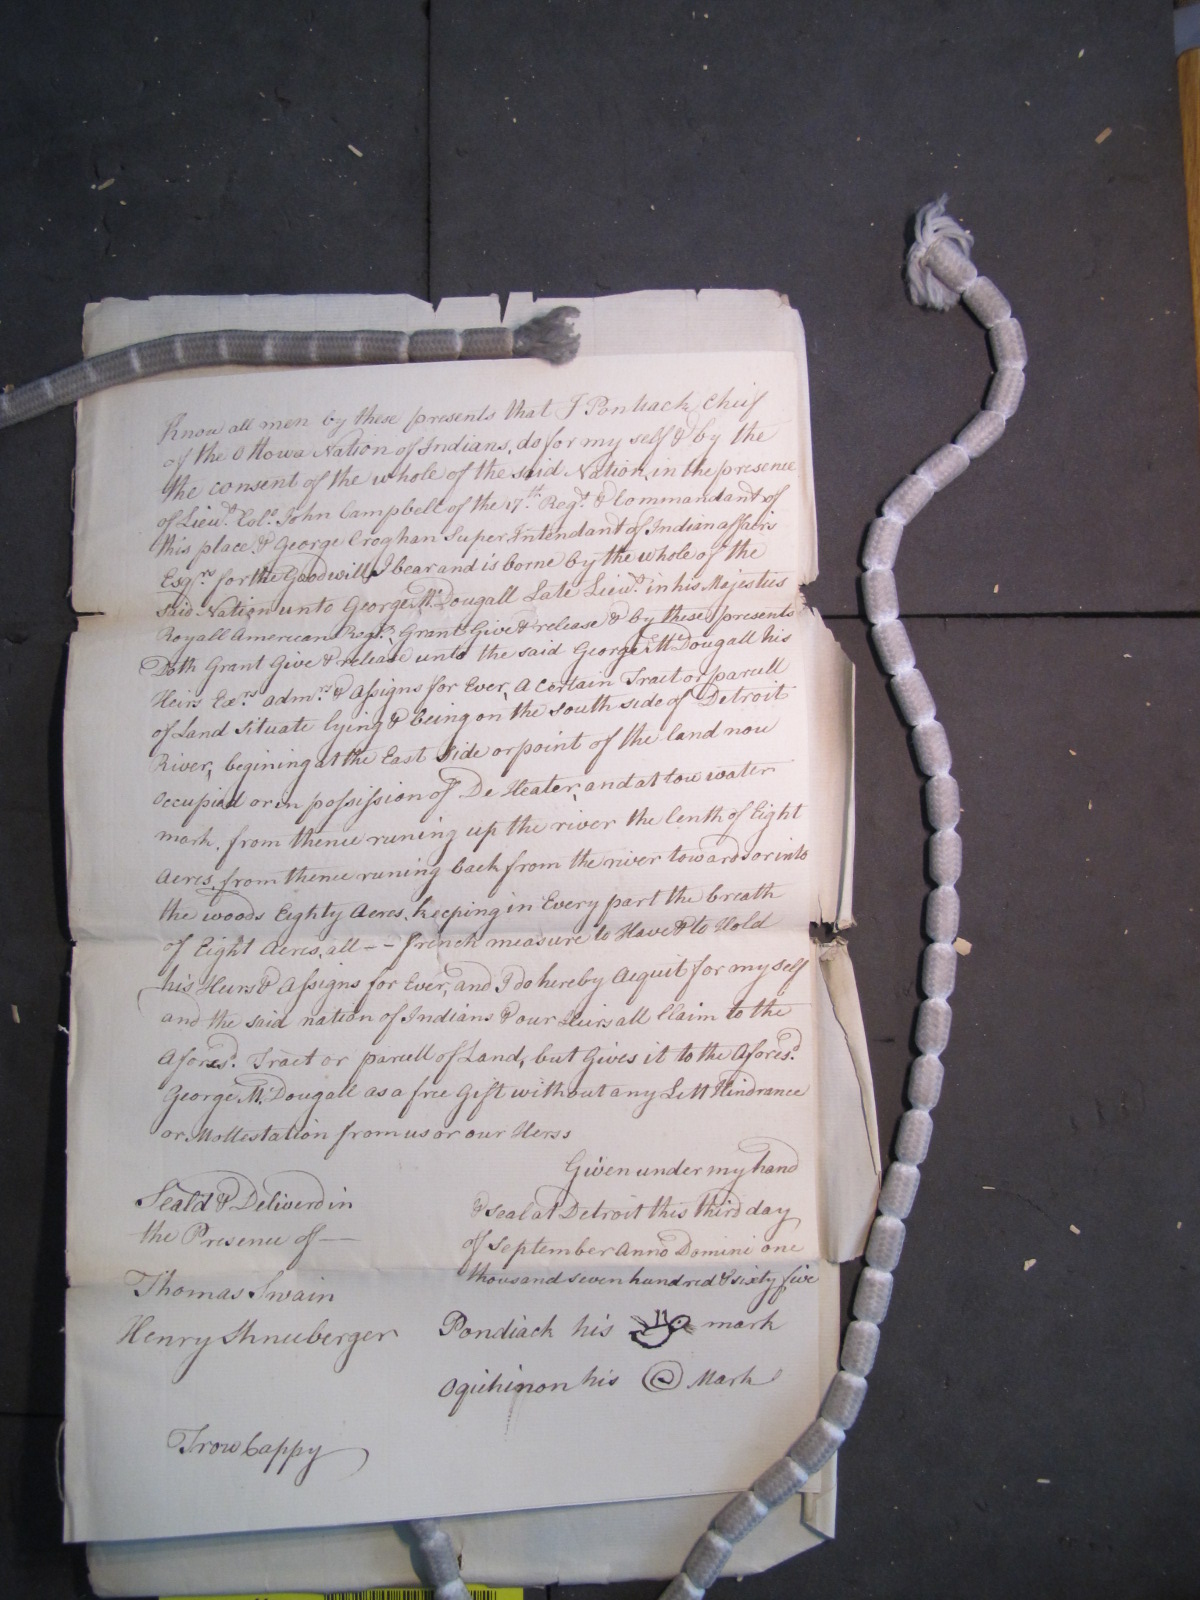 Know all men by these presents that I Pontiack Chief
of the Ottowa Nation of Indians, do for my self & by the
the consent of the whole of the said Nation, in the presence
of Lieut. Col. John Campbell of the 17th. Regt. & Commandant of
this place, & George Croghan Super Intendant of Indian affairs
Esqrs. for the Goodwill I bear and is borne by the whole of the
said Nation unto George Mc.Dougall Late Lieut. in his Majesties
Royall American Regt. Grant Give & release & by these presents
Doth Grant Give & release unto the said George McDougall his
Heirs Exrs. admrs. & Assigns for Ever, A Certain Tract or parcell
of Land situate lying & being on the south side of Detroit
River, begining at the East side or point of the land now
Occupied or in possission of De Heater, and at low water
mark, from thence runing up the river the lenth of Eight
Acres, from thence runing back from the river towards or into
the woods Eighty Acres, keeping in Every part the breath
of Eight Acres, all -- french measure to Have & to Hold
his Heirs & Assigns for Ever, and I do hereby Acquit for my self
and the said nation of Indians & our Heirs all Claim to the
Aforesd. Tract or parcell of Land, but Gives it to the Aforesd.
George Mc.Dougall as a free Gift without any Lett Hindrance
or Mollestation from us or our Herss
Given under my hand
& seal at Detroit this third day
of September Anno Domini one
thousand seven hundred & sixty five
Seald & Deliverd in
the Presence of —
Thomas Swain
Henry Shneuberger
Pondiack his mark
his Mark
Trow Cappy